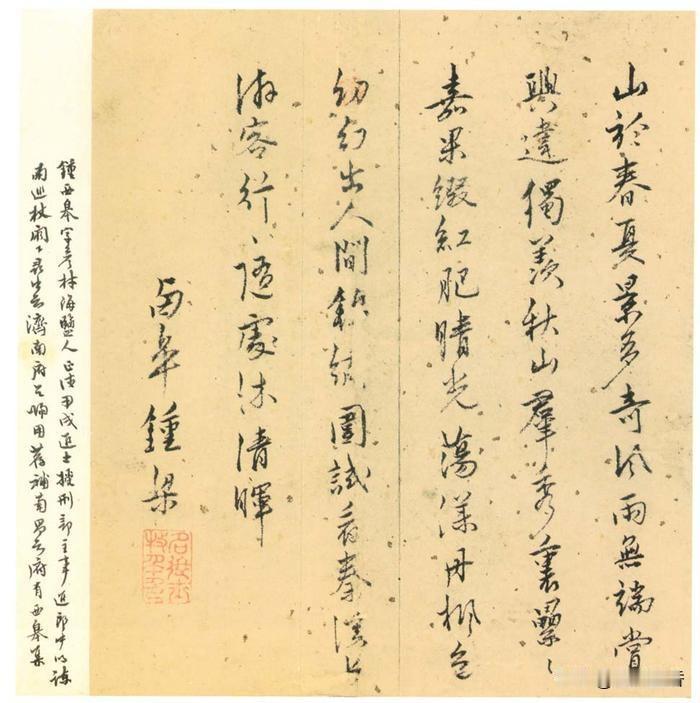 山於春夏景多奇風雨無端賞
興違獨羨秋山羣秀裏纍〻
嘉果綴紅肥晴光蕩漾丹楓色
幻出人間錦繡圍試看秦溪上
游客行〻隨處沐清暉
西皋鍾梁
鍾西皋字彥材海鹽人正德甲戌進士授刑部主事進郎中以諫
南巡杖闕下尋出知濟南府以歸用薦補南昌知府有西皋集